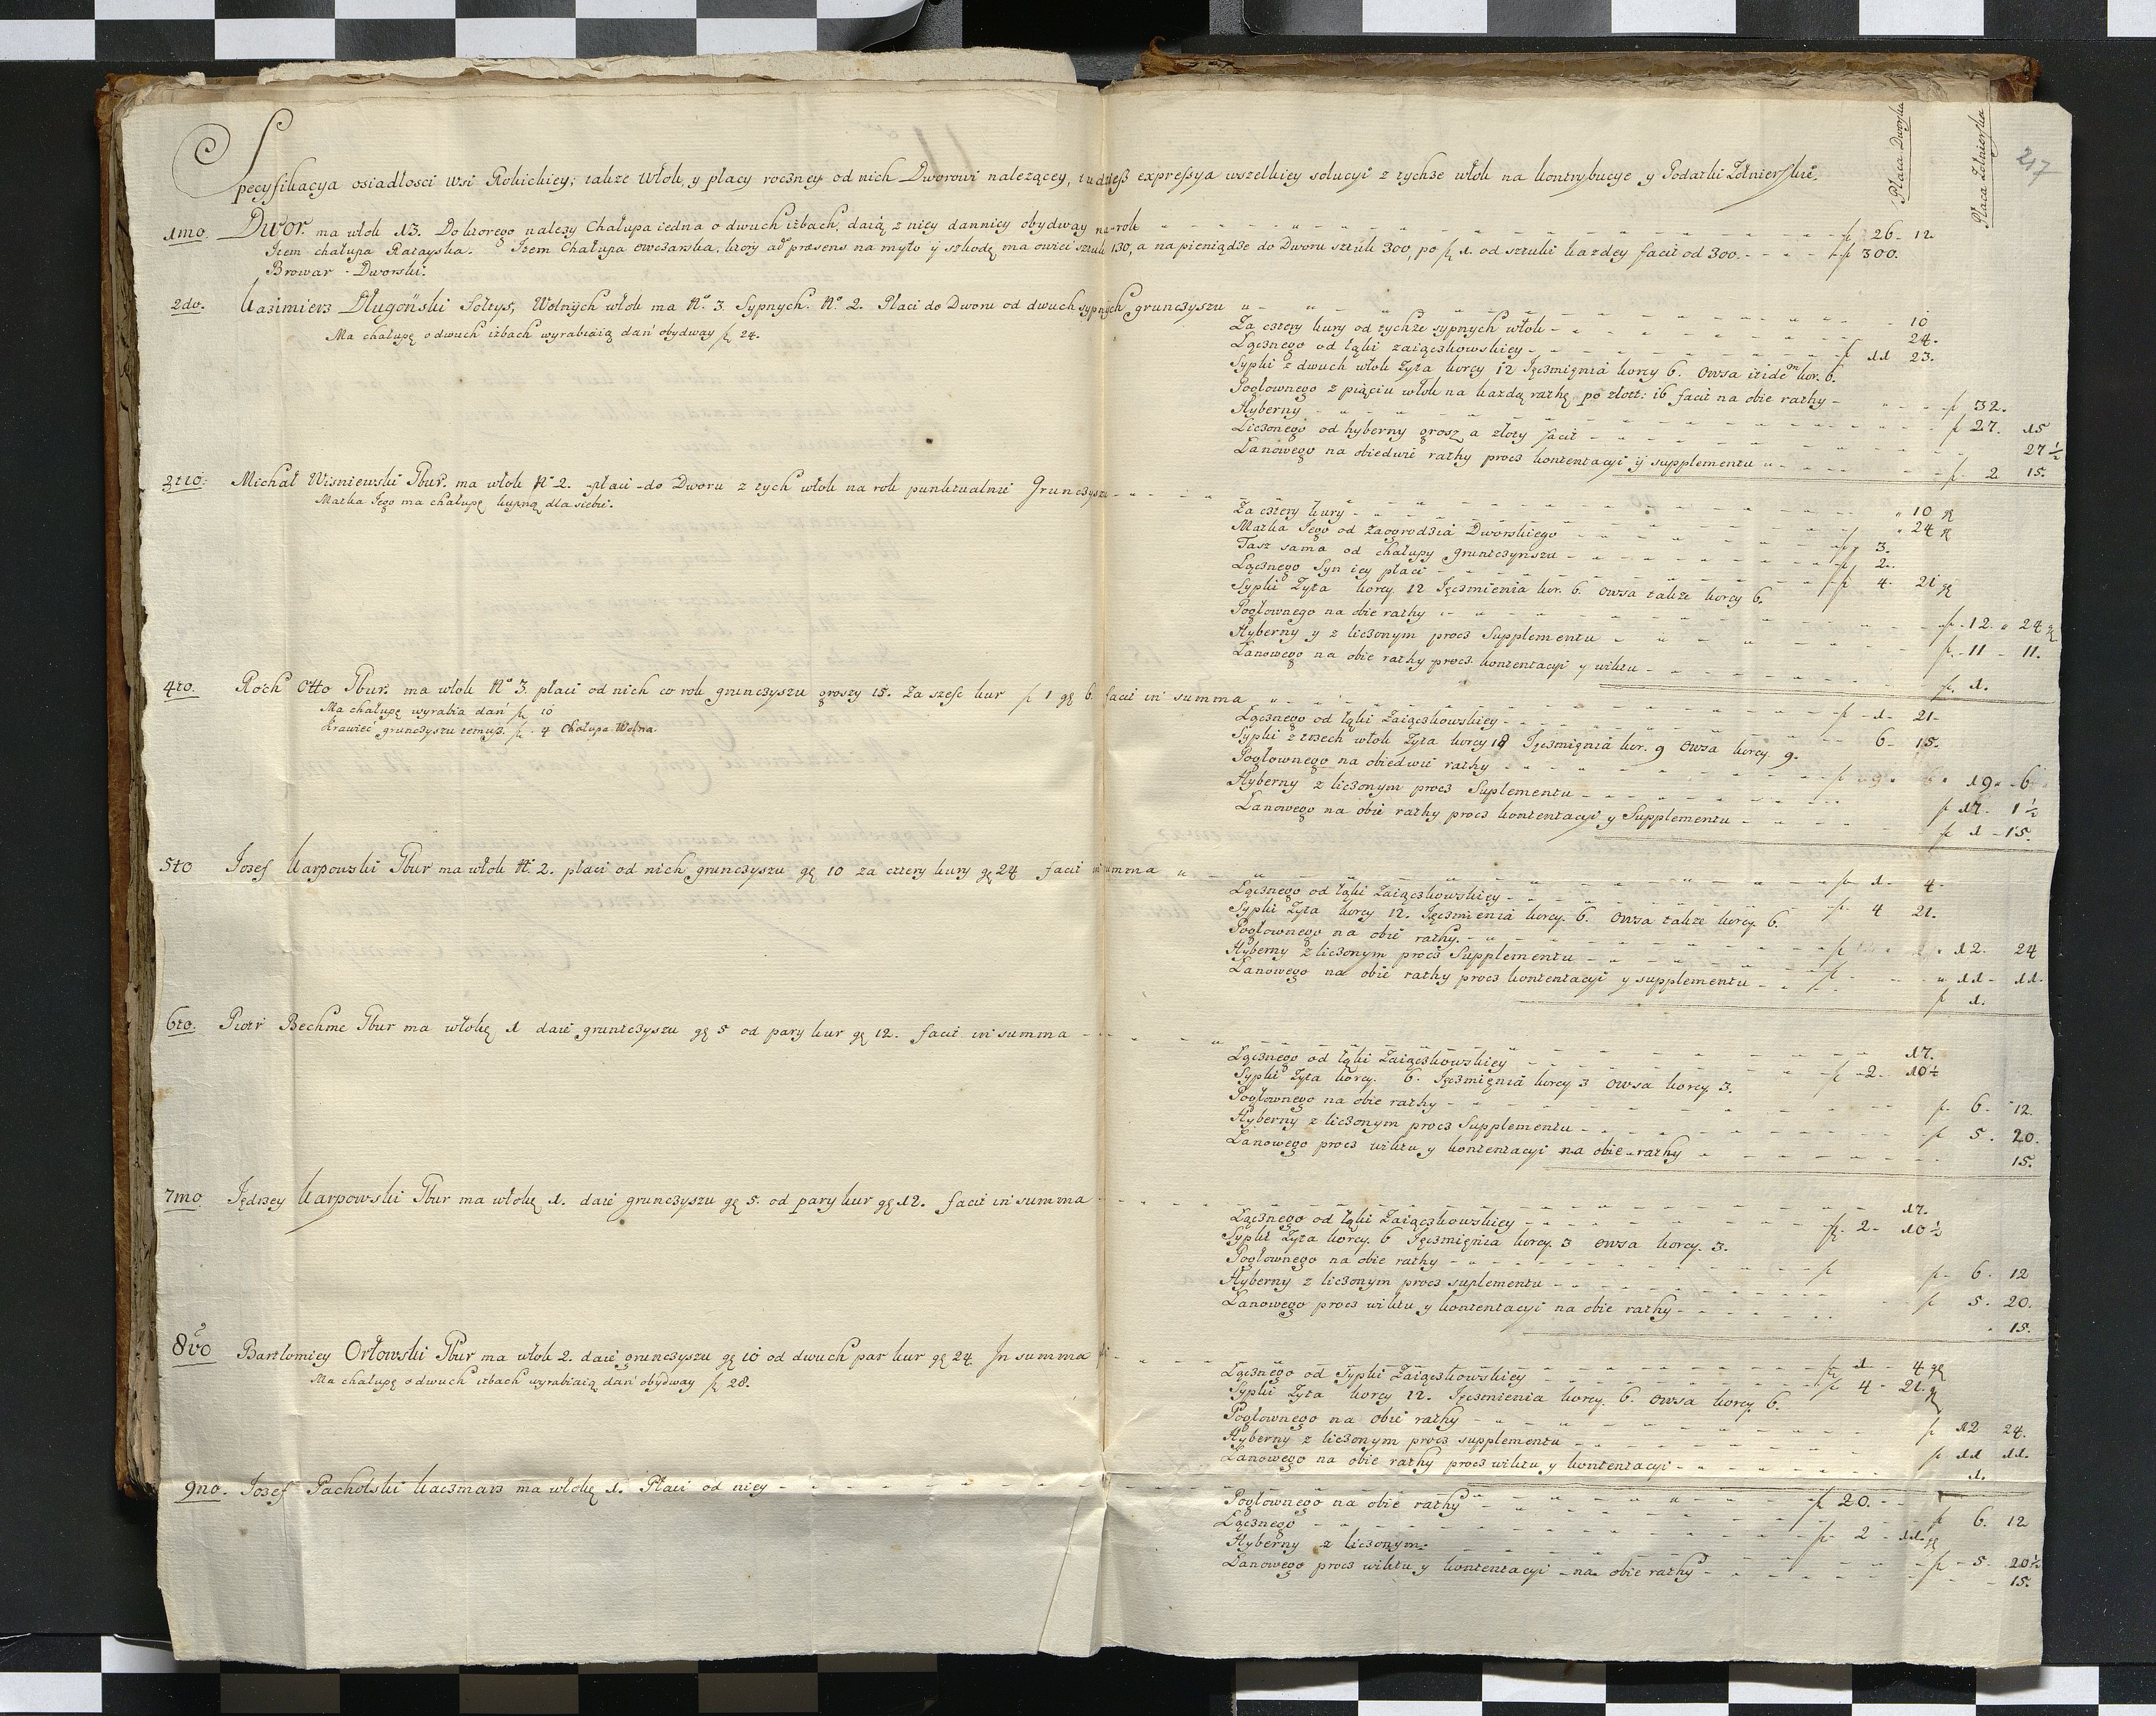 217
Płaca Dworska
Płaca Zołnierska
Specyfikacya osiadłosci wsi Rokickiey; takze Włok, y płacy roczney od nich Dworowi nalezącey, tudzież expressya wszelkiey solucyi z tychze włok na kontrybucye y Podatki Zołnierskie.
1mo. Dwor. ma włok 13. Do ktorego nalezy Chałupa iedna o dwuch izbach, daią z niey dannicy obydway na rok fl 26 - 12
Item chałupa Ratayska. Item Chałupa owczarska, ktory ad præsens na myto y szkodę ma owiec sztuk 130, a na pieniądze do Dworu sztuk 300, po fl 1. od sztuki kazdey facit od 300. - fl 300.
Browar - Dworski.
2do. Kazimierz Długoński Sołtys, Wolnych włok ma No. 3. Sypnych. No. 2. Płaci do Dworu od dwuch sypnych grunczyszu 10
Ma chałupę o dwuch izbach wyrabiaią dań obydway fl 24.
Za cztery kury od tychze sypnych włok - 24.
Łącznego od łąki zaiączkowskiey - fl 11 23.
Sypki z dwuch włok Zyta korcy 12 Jęczmięnia korcy 6. owsa itidem kor. 6.
Pogłownego z pięciu włok na kazdą rathę po złott: 16 facit na obie rathy - fl 32.
Hyberny - fl 27. 15
Liczonego od hyberny grosz a złoty facit - 27 ½
Łanowego na obiedwie rathy procz kontentacyi y supplementu - fl 2 15.
3tio. Michał Wisniewski Gbur. ma włok No 2. płaci do Dworu z tych włok na rok punktualnie Grunczyszu - 10 gr
Matka Jego ma chałupę kupną dla siebie.
Za cztery kury - 24 gr
Matka Jego od Zagrodzia Dworskiego - fl 3.
Taż sama od chałupy gruntczynszu - fl 2.
Łącznego Syn iey płaci - fl 4. 21 gr
Sypki Zyta korcy 12 Jęczmienia kor. 6. owsa takze korcy 6.
Pogłownego na obie rathy - fl 12. 24 gr
Hyberny y z liczonym procz Supplementu - fl 11 - 11.
Łanowego na obie rathy procz kontentacyi y wiktu - fl. 1.
4to. Roch Otto Gbur. ma włok No 3. płaci od nich co rok grunczyszu groszy 15. Za szesc kur fl 1 gr 6. facit in summa - fl 1 - 21
Ma chałupę wyrabia dań fl 10
Krawiec grunczyszu temuż. fl 4 Chałupa Wolna.
Łącznego od łąki Zaiączkowskiey - 6 - 15.
Sypki z trzech włok Zyta korcy 18 Jęczmięnia kor. 9 owsa korcy 9.
Pogłownego na obiedwie rathy - fl 19 - 6
Hyberny z liczonym procz Suplementu - fl 17. 1 ½
Łanowego na obie rathy procz kontentacyi y Supplementu - fl 1 - 15.
5to Jozef Karpowski Gbur ma włok No. 2. płaci od nich grunczyszu gr 10 za cztery kury gr 24 facit in summa - fl 1 4.
Łącznego od łąki Zaiączkowskiey - fl 4 21.
Sypki Zyta korcy 12. Jęczmienia korcy. 6. owsa takze korcy. 6.
Pogłownego na obie rathy. - fl 12. 24
Hyberny z liczonym procz Supplementu - fl 11 - 11.
Łanowego na obie rathy procz kontentacyi y supplementu - fl 1.
6to. Piotr Bechme Gbur ma włokę 1 daie gruntczyszu gr 5 od pary kur gr 12. facit in summa - 17.
Łącznego od łąki Zaiączkowskiey - fl 2. 10 ½
Sypki Zyta korcy. 6. Jęczmięnia korcy 3 owsa korcy 3.
Pogłownego na obie rathy - fl 6. 12.
Hyberny z liczonym procz Supplementu - fl 5. 20.
Łanowego procz wiktu y kontentacyi na obie rathy - 15.
7mo. Jędrzey Karpowski Gbur ma włokę 1. daie grunczyszu gr 5. od pary kur gr 12. facit in summa - 17.
Łącznego od łąki Zaiączkowskiey - fl 2 - 10 ½
Sypki Zyta korcy. 6 Jęczmięnia korcy. 3 owsa korcy. 3.
Pogłownego na obie rathy - fl 6. 12
Hyberny z liczonym procz suplementu - fl 5. 20.
Łanowego procz wiktu y kontentacyi na obie rathy - 15.
8vo Bartłomiey Orłowski Gbur ma włok 2. daie grunczyszu gr 10 od dwuch par kur gr 24 Jn summa - fl 1 - 4 gr
Ma chałupę o dwuch izbach wyrabiaią dań obydway fl 28.
Łącznego od Sypki Zaiączkowskiey - fl 4 - 21. gr
Sypki Zyta korcy 12. Jęczmienia korcy. 6. owsa korcy 6.
Pogłownego na obie rathy - fl 12 24.
Hyberny z liczonym procz supplementu - fl 11 11.
Łanowego na obie rathy procz wiktu y kontentacyi - 1.
9no. Jozef Pacholski Kaczmarz ma włokę 1. Płaci od niey - fl 20.
Pogłownego na obie rathy - fl 6. 12
Łącznego - fl 2 - 11 gr
Hyberny z liczonym - fl 5. 20 ½
Łanowego procz wiktu y kontentacyi na obie rathy - 15.